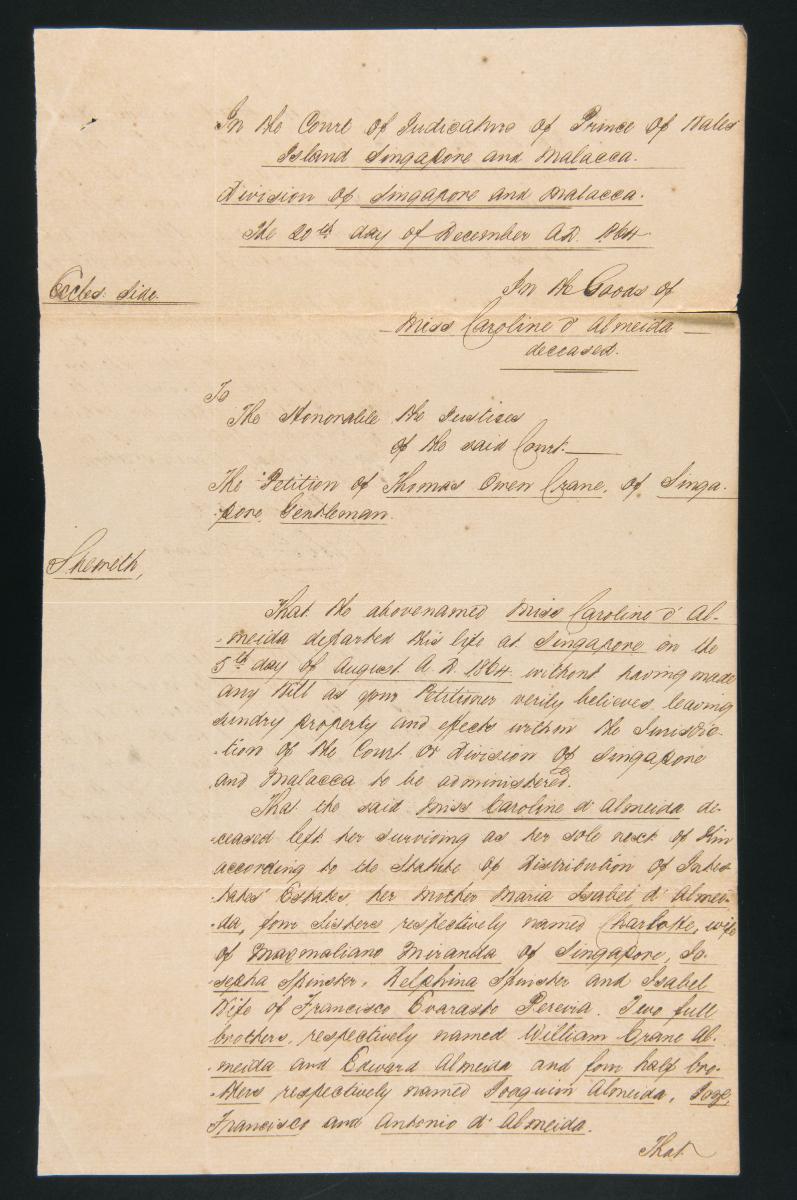 In the Court of Judicature of Prince of Wales
Island Singapore and Malacca.
Division of Singapore and Malacca.
The 20th day of December A.D. 1864.
Eccles: Side.
In the Goods of
Miss Caroline d' Almeida
deceased.
To
The Honorable the Justices
of the said Court.
The Petition of Thomas Owen Crane, of Singa-
-pore, Gentleman.
Sheweth,
That the abovenamed Miss Caroline d' Al-
-meida departed this life at Singapore on the
5th day of August A.D. 1864. without having made
any Will as your Petitioner verily believes, leaving
sundry property and effects within the Jurisdic-
-tion of the Court or Division of Singapore
and Malacca to be administered.
That the said Miss Caroline d' Almeida de-
-ceased left her surviving as her sole next of Kin
according to the Statute of Distribution of Intes-
tates' Estates, her Mother Maria Isabel d' Almei-
-da, four Sisters respectively named Charlotte, wife
of Maqmaliano Miranda of Singapore, Jo-
-sepha Spinster, Delphina Spinster and Isabel
Wife of Francisco Evarasto Pereira. Two full
brothers, respectively named William Crane Al-
-meida and Edward Almeida and four half bro-
-thers respectively named Joaquim Almeida, Joze,
Francisco and Antonio d' Almeida.
That